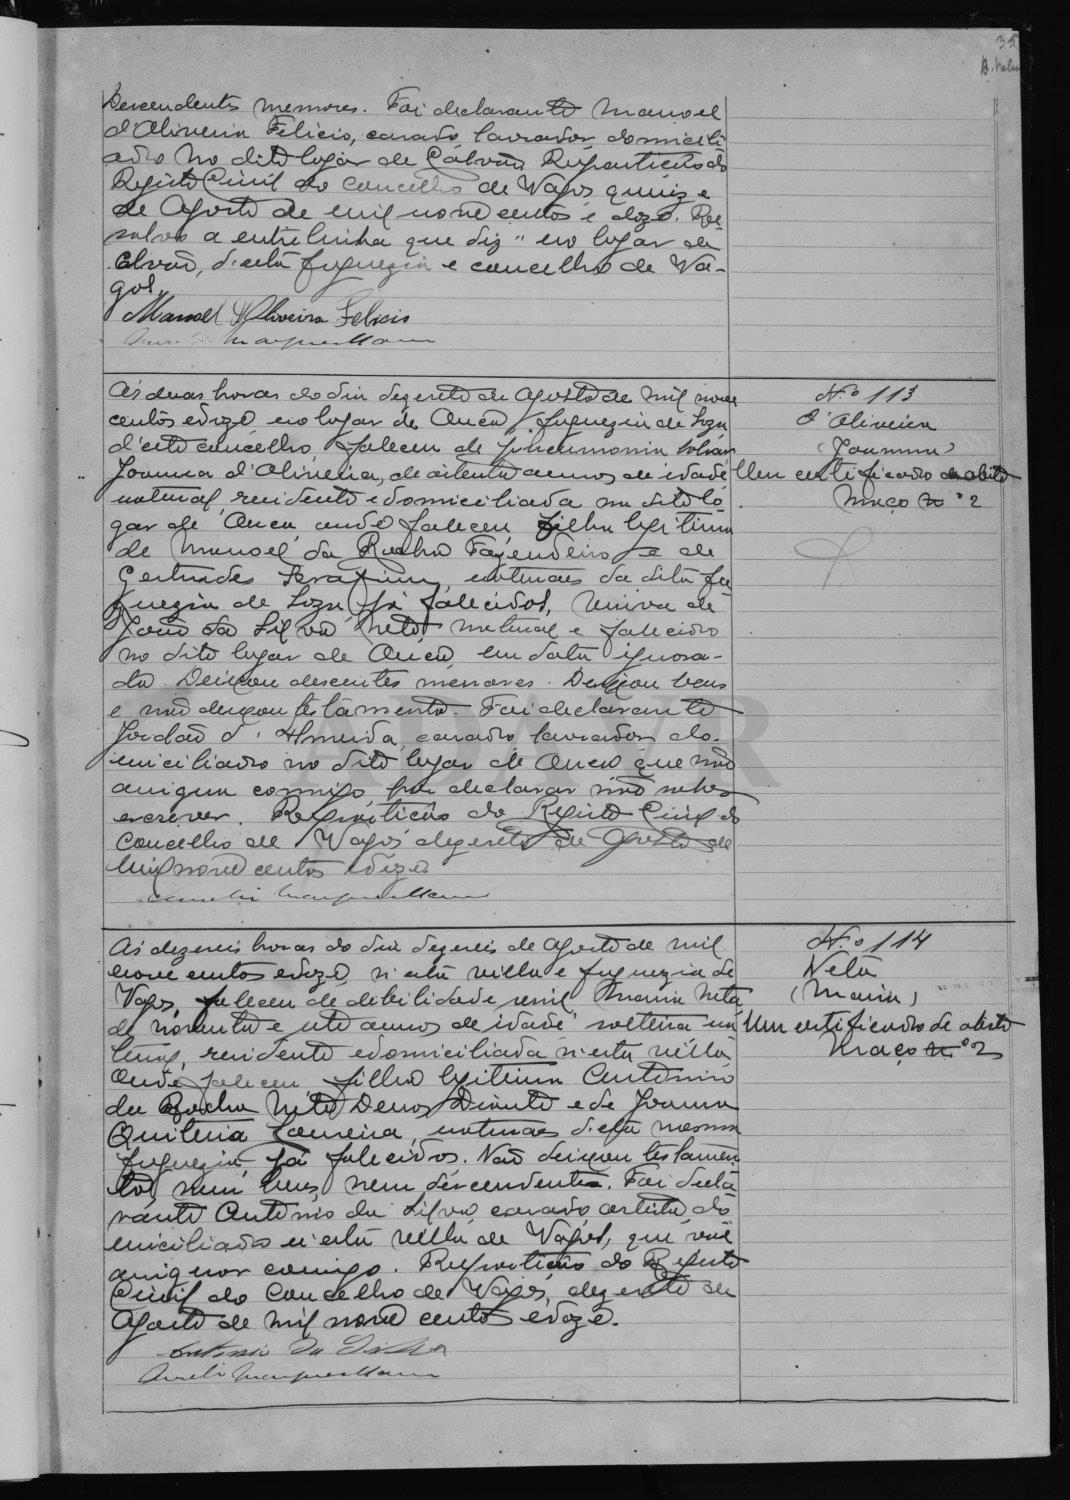 35
Descendentes menores. Foi declarante Manoel
d'Oliveira Felicio, casado lavrador domicili
ado no dito logar de Calvão. Repartição do
Registo Civil do concelho de Vagos quinze
de Agosto de mil nove centos e doze. Res
salvo a entrelinha que diz "no logar de
Calvão, desta freguezia e concelho de Va-
gos.
Manoel d'Oliveira Felicio
Ás duas horas do dia dezesete de Agosto de mil nove
centos e doze, no logar de Ouca, freguezia de Soza
d'este concelho, faleceu de pneumonia
Joanna d'Oliveira, de oitenta annos de idade
natural, residente e domiciliada no dito lo
gar de Ouca, onde faleceu, filha legitima
de Manoel da Rocha Fazendeiro e de
Gertrudes Serafina, naturaes da dita fre
guezia de Soza, já falecidos, viuva de
João da Silva Neto, natural e falecido
no dito logar de Ouca, em data ignora-
da. Deixou descentes menores. Deixou bens
e não deixou testamento. Foi declarante
Jordão d'Almeida, casado lavrador do-
miciliado no dito logar de Ouca que não
assigna commigo, por declarar não saber
escrever. Repartição do Registo Civil do
Concelho de Vagos dezesete de Agosto de
mil nove centos e doze.
Nº 113
d'Oliveira
(Joanna)
Um certificado de obito
Maço nº 2
Ás dezeseis horas do dia dezeseis de Agosto de mil
nove centos e doze, n'esta villa e freguezia de
Vagos, faleceu de debilidade senil Maria Neta
de noventa e sete annos de idade solteira na
tural, residente e domiciliada n'esta villa,
onde faleceu, filha legitima Antonio
da Rocha Neto Deros e de Joanna
Quiteria Loureira, naturaes d'esta mesma
freguezia, já falecidos. Não deixou testamen
to, nem bens, nem descendentes. Foi decla
rante Antonio da Silva casado artista do
miciliado n'esta villa de Vagos, que vae
assignar comigo. Repartição do Registo
Civil do Concelho de Vagos, dezesete de
Agosto de mil nove centos e doze.
Antonio da Silva
Nº 114
Neta
(Maria)
Um certificado de obito
Maço nº 2